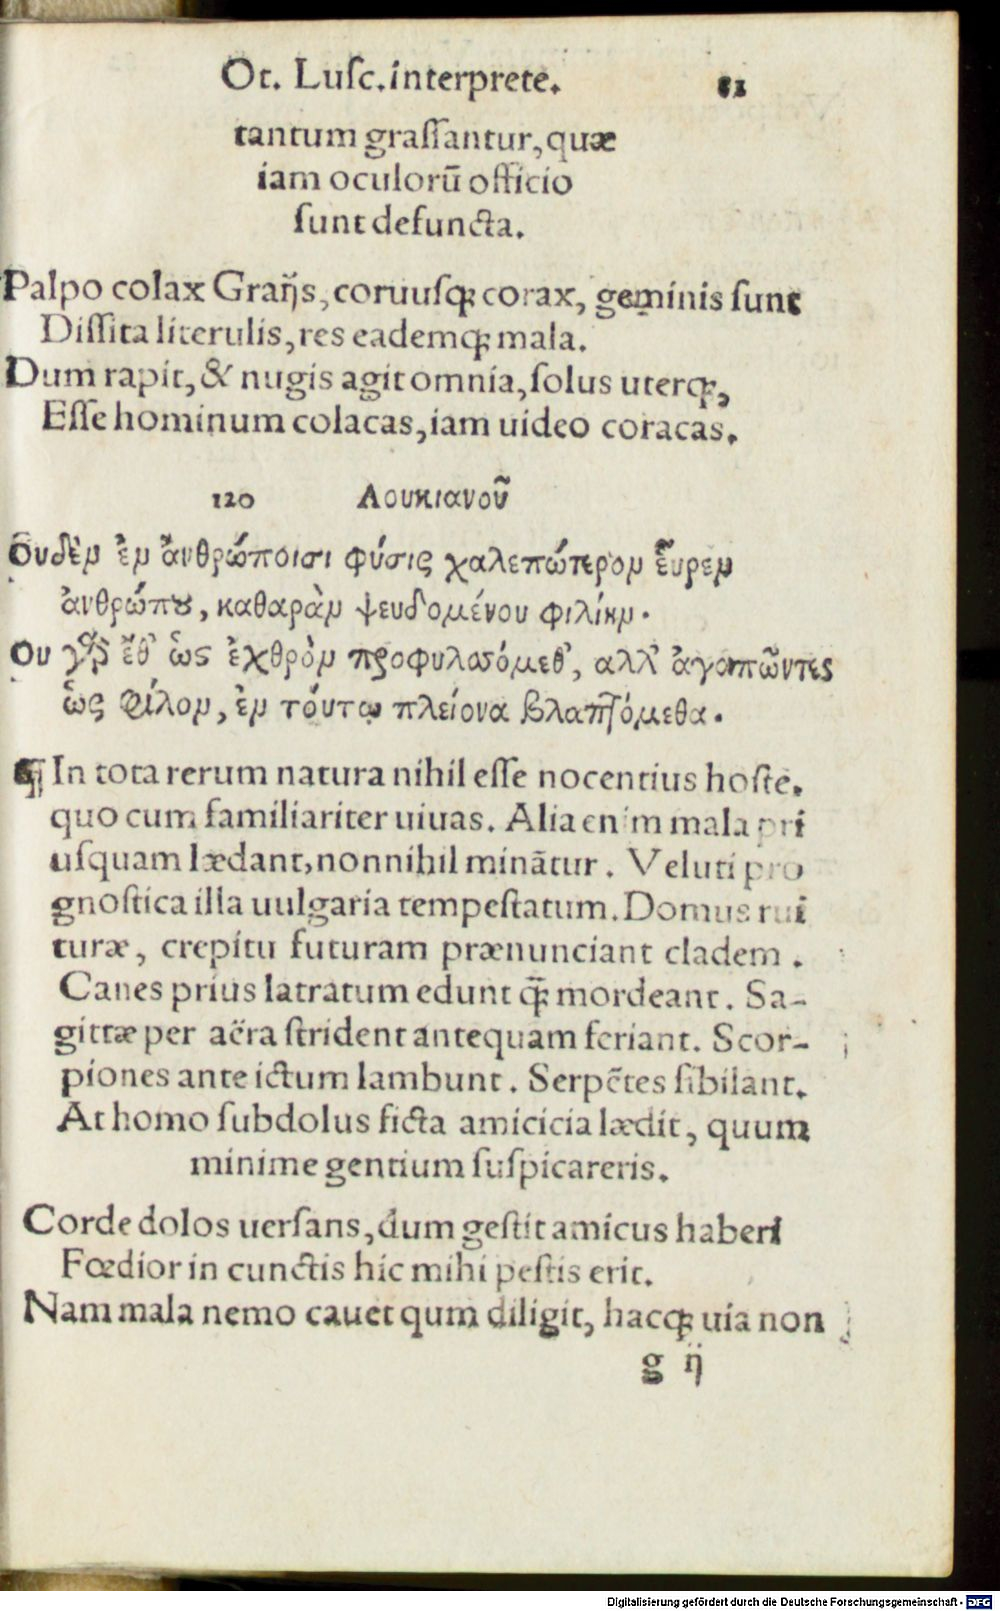 Ot. Luſc. interprete. 81
tantum graſſantur, quæ
iam oculorū officio
ſunt defuncta.
Palpo colax Graijs, coruusq; corax, geminis ſunt
Diſſita literulis, res eademq; mala.
Dum rapit, & nugis agit omnia, ſolus uterq;,
Eſſe hominum colacas, iam uideo coracas.
120 Λουκιανοῦ
Ουδὲν ἐν ἀνθρώποισι φύσις χαλεπώτερον εὗρεν
ἀνθρώπου, καθαρὰν ψευδομένου φιλίην.
Ου γὰρ ἔθ' ὡς ἐχθρὸν προφυλασόμεθ', αλλ' ἀγαπῶντες
ὡς φίλον, ἐν τούτῳ πλείονα βλαπτόμεθα.
¶ In tota rerum natura nihil eſſe nocentius hoſte.
quo cum familiariter uiuas. Alia enim mala pri
uſquam lædant, nonnihil minātur. Veluti pro
gnoſtica illa uulgaria tempeſtatum. Domus rui
turæ, crepitu futuram prænunciant cladem.
Canes prius latratum edunt q̄; mordeant. Sa-
gittæ per aëra ſtrident antequam feriant. Scor-
piones ante ictum lambunt. Serpētes ſibilant.
At homo ſubdolus ficta amicicia lædit, quum
minime gentium ſuſpicareris.
Corde dolos uerſans, dum geſtit amicus haberi
Fœdior in cunctis hic mihi peſtis erit.
Nam mala nemo cauet qum diligit, hacq; uia non
g ij
Digitalisierung gefördert durch die Deutsche Forschungsgemeinschaft - DFG